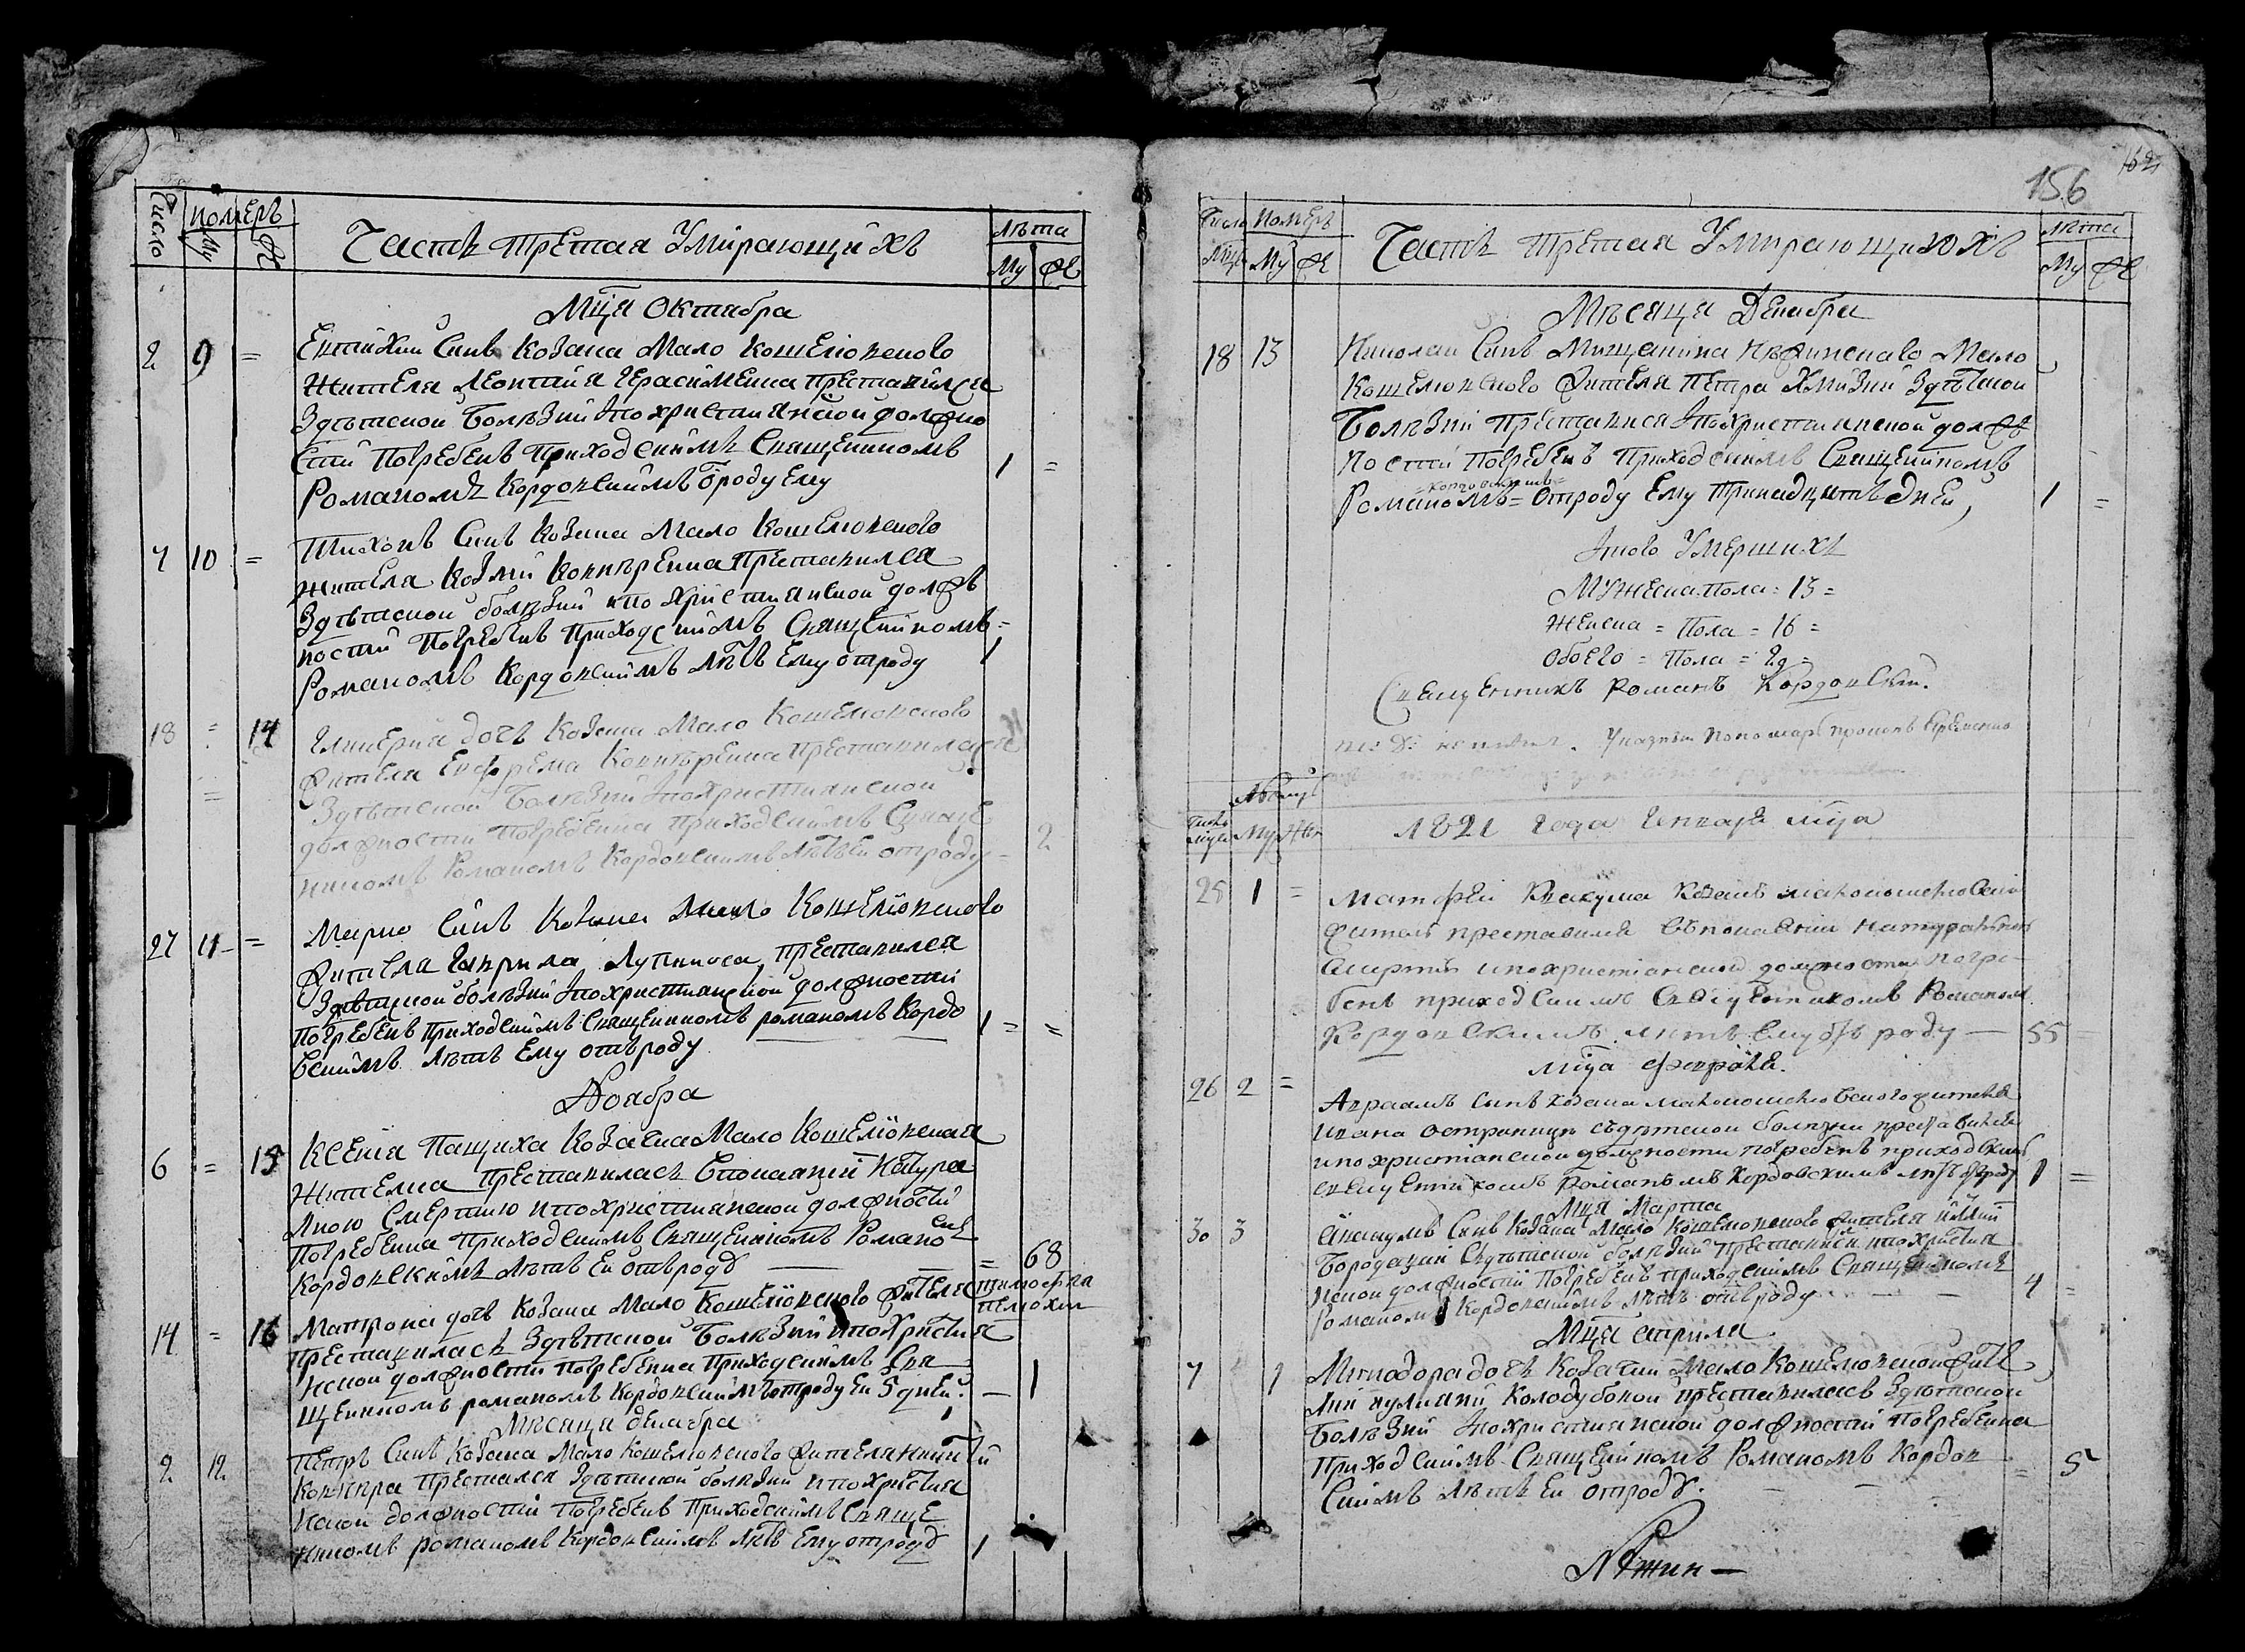 Число
Номеръ
Му
Фе
Часть третая Умирающийхъ
Лѣта
Му Фе
Мца Октабра
2 9 = Евтихий Синъ Козака Мало Кошелювского
Жителя Леонтия Герасименка преставился
Здѣтской болѣзни и по християнской должно
сти погребенъ приходскимъ Священникомъ
Романомъ Кордовскимъ ѿроду ему 1 =
7 10 = Тихонъ Синъ Козака Мало Кошелювского
жителя Козми преставился
Здѣтской болѣзни и по християнской долж
ности погребенъ приходскимъ Священикомъ =
Романомъ Кордовскимъ лѣтъ ему отроду 1
18 = 14 Гликерия дочъ Козака Мало Кошелювского
жителя Евфрема преставилася
= Здѣтской болѣзни и по християнской
должности погребенна приходскимъ Свяще
никомъ Романомъ Кордовскимъ лѣтъ ей отроду 2
27 11 = Марко Синъ Козака Мало Кошелювского
жителя Гаврила преставился
Здѣтской болѣзни и по християнской должности
погребенъ приходскимъ Священникомъ романомъ Кордо 1 = =
вскимъ лѣтъ ему отъроду
Ноября
6 = 15 Ксения Пащиха Козачка Мало Кошелювская
жителка преставиласъ Спокаяний Натура
лною Смертию и по християнской должности
погребенна приходскимъ Священикомъ Романо
Кордовскимъ лѣтъ ей отъроду = 68
14 = 16 Матрона дочъ Козака Мало Кошелювского жителя Тимофея
преставиласъ Здѣтской болѣзни и по християн
нской должности погребенна приходскимъ Свя
щенникомъ романомъ Кордовскимъ отроду ей 5 дней. — 1
Мѣсяца декабра
2 12 Петръ Синъ Козака Мало Кошелювского жителя
престался Здѣтской болѣзни и по християн
нской должности погребенъ приходскимъ Свяще
нникомъ романомъ Кордовскимъ лѣтъ ему отроду 1
156
Число Номеръ
Мца Му Фе
Часть третая Умирающихъ
Лѣта
Му Фе
Мѣсяца Декабра
18 13 Николай Синъ Мещанина Нѣжинскаго Мало
Кошелювского жителя Петра Здѣтской
болѣзни преставися и по християнской долж
ности погребенъ приходскимъ Священикомъ
= кордовскимъ =
Романомъ = отроду ему тринадцать дней 1 =
Итого Умершихъ
Мужеска пола = 13 =
Женска = Пола = 16 =
Обоего = Пола = 29 =
Священникъ Романъ Кордовский.
Указный пономарь
1821 Года Генваря мца
Число
мца Му Же
25 1 = Матфей Козакъ малокошелювский
житель преставился съпокаянии натуралною
Смертию и по християнской должности погре-
бенъ приходскимъ Священникомъ Романом
Кордовскимъ лѣтъ ему ѿ роду — 55
мца февраля.
26 2 = Авраамъ сынъ козака малокошелювского жителя
Ивана Остраници сдѣтской болѣзни преставился
и по християнской должности погребенъ приходским
священникомъ Романомъ Кордовскимъ лѣтъ ѿроду 1 =
Мца Марта
30 3 Синъ Козака Мало Кошелювского жителя
Сдѣтской болѣзни преставися и по християн
нской должности погребенъ приходскимъ Священикомъ
Романомъ Кордовскимъ лѣтъ отъроду — — 4 =
Мца априля
7 1 Минодора дочъ Козачки Мало Кошелювской жите
лки преставиласъ Здѣтской
болѣзни и по християнской должности погребенна
приходскимъ Священикомъ Романомъ Кордов
скимъ лѣтъ ей отроду. — — = 5